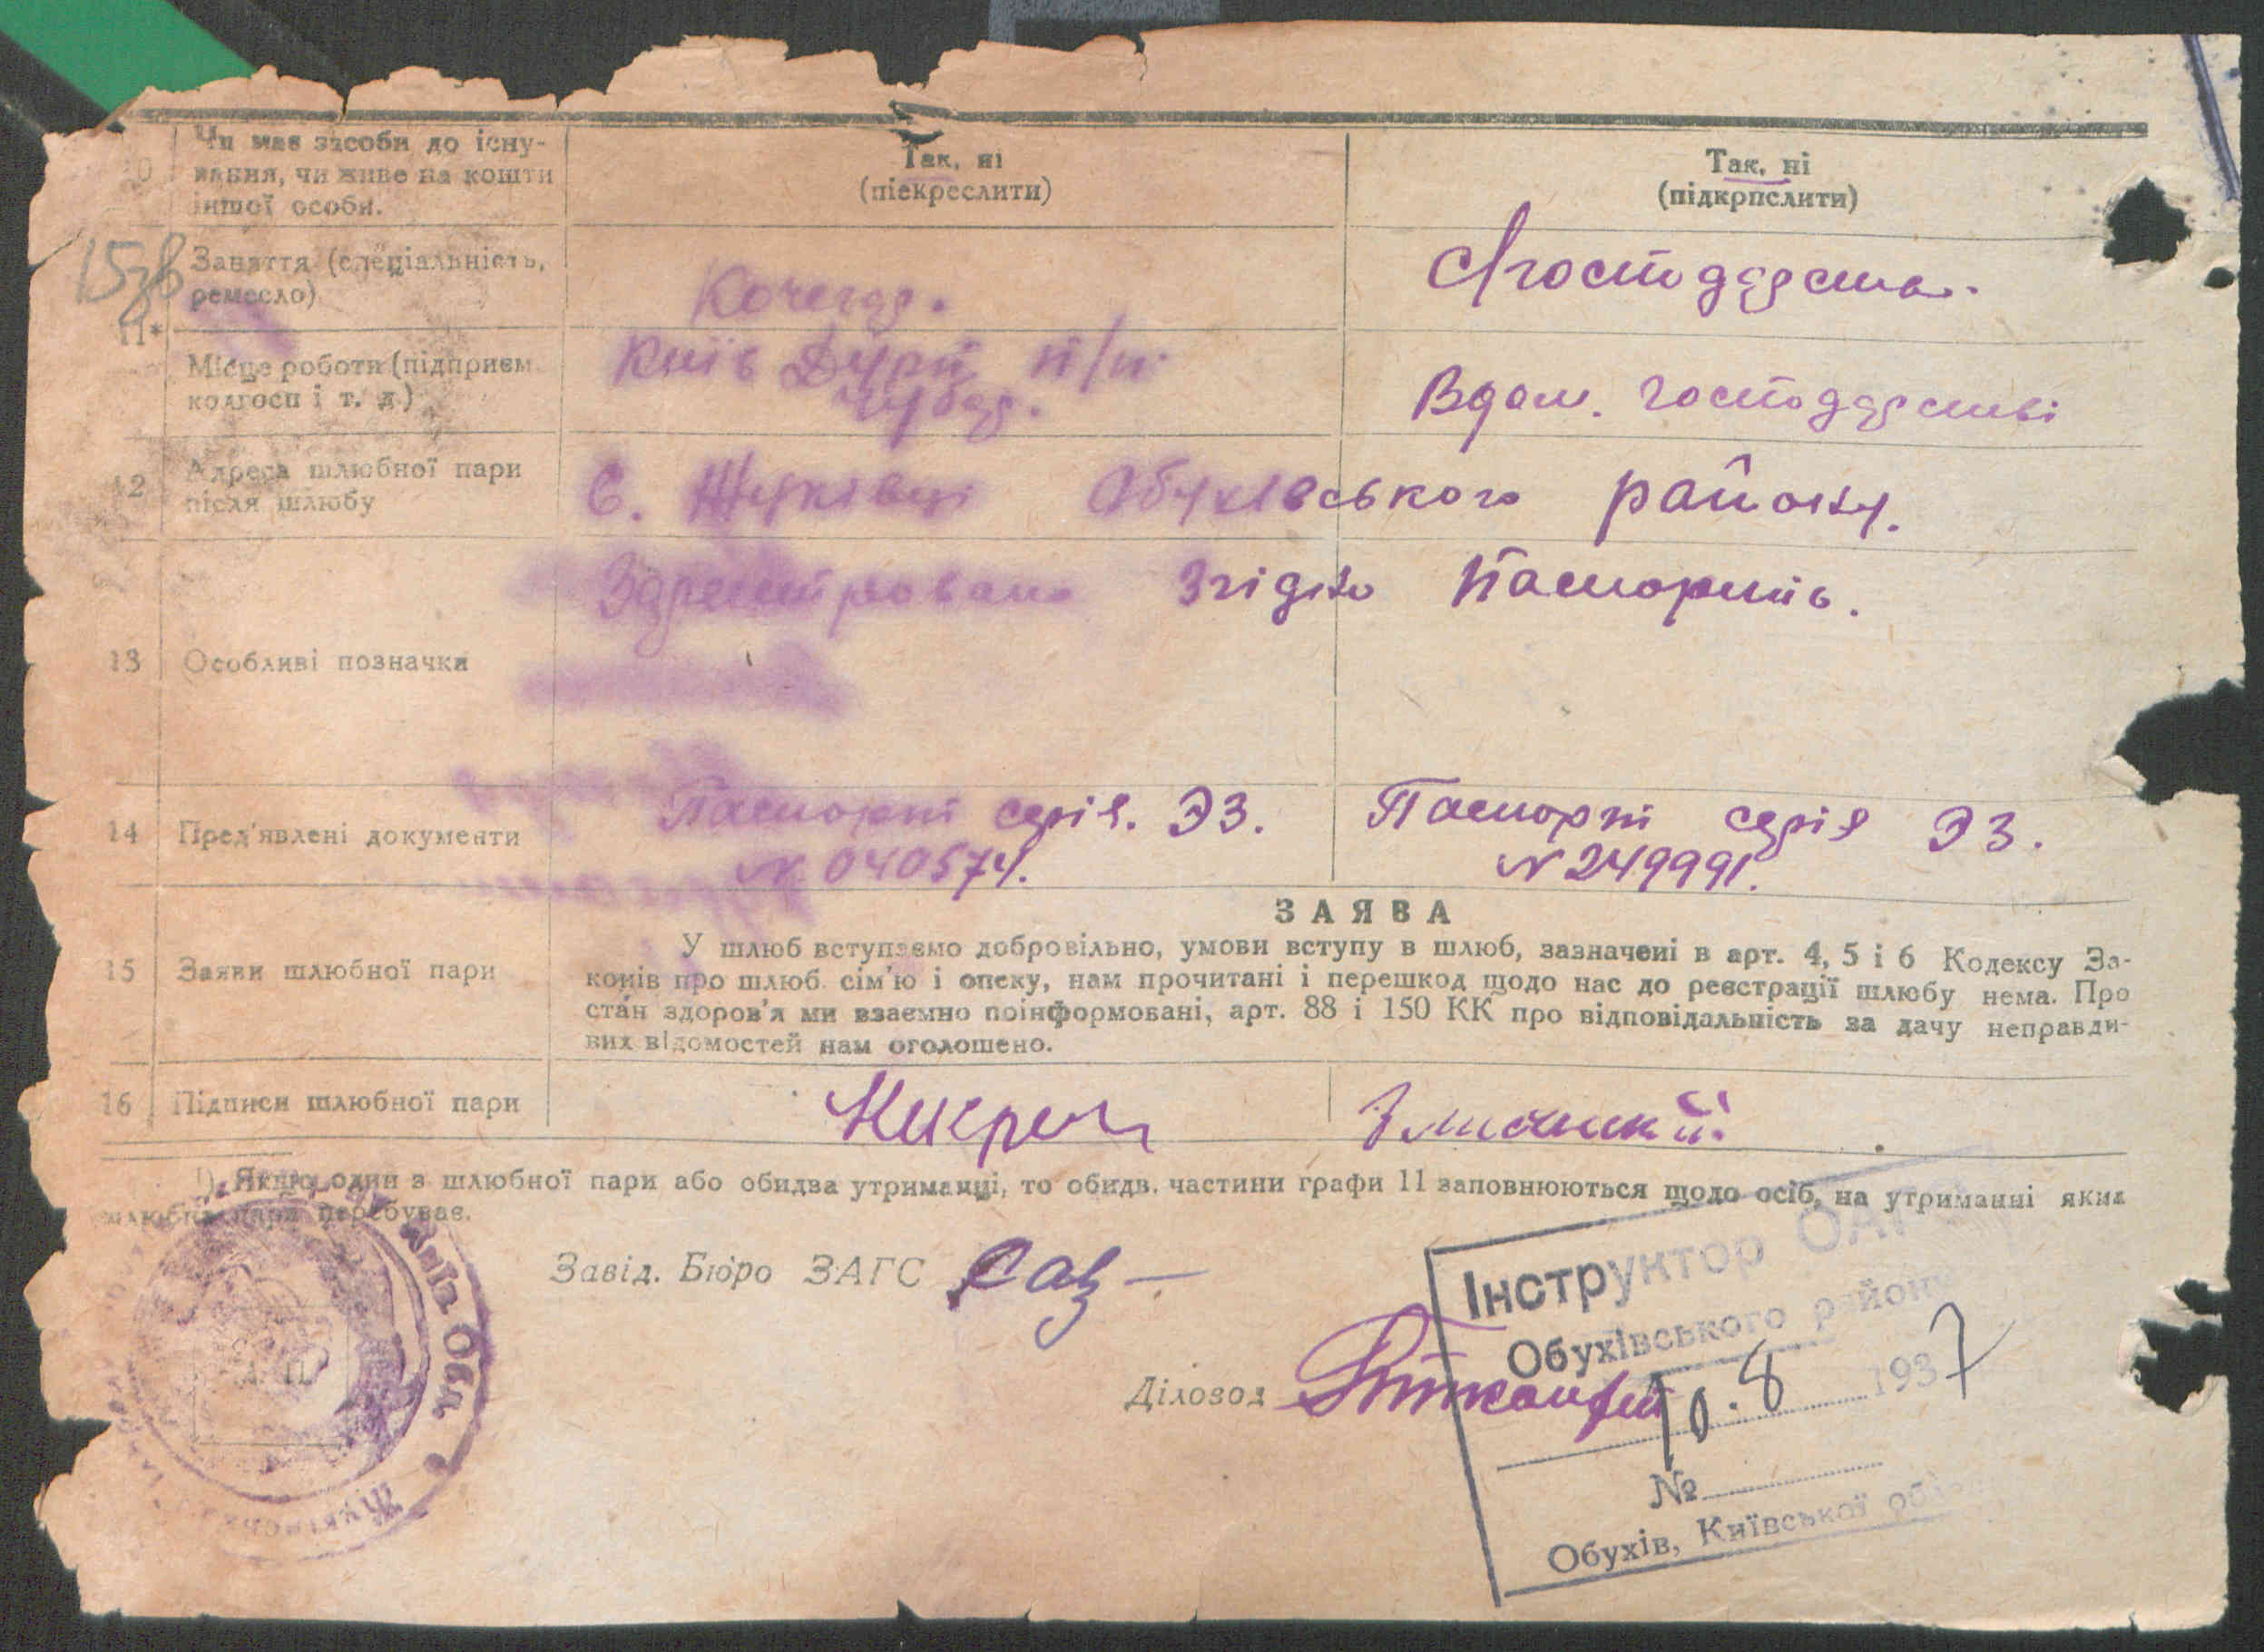 Чи має засоби до існу-
вання, чи живе на кошти
іншої особи.
Так, ні
(піекреслити)
Так, ні
(підкрпслити)
15зв
11*
Заняття (спеціальність,
ремесло)
Кочегар.
Місце роботи (підприєм
колгосп і т. д.)
Київ п/п
Чубар.
Вдом. господарстві
12
Адреса шлюбної пари
після шлюбу
С. Жуківці Обухівського району.
13
Особливі позначки
Зареєстровано Згідно Паспортів.
14
Пред'явлені документи
Паспорт серія. ЭЗ.
N. 040574.
Паспорт серія ЭЗ.
N 249991.
15
Заяви шлюбної пари
ЗАЯВА
У шлюб вступаємо добровільно, умови вступу в шлюб, зазначені в арт. 4, 5 і 6 Кодексу За-
конів про шлюб. сім'ю і опеку, нам прочитані і перешкод щодо нас до реєстрації шлюбу нема. Про
стан здоров'я ми взаємно поінформовані, арт. 88 і 150 КК про відповідальність за дачу неправди-
вих відомостей нам оголошено.
16
Підписи шлюбної пари
1). Якщо один з шлюбної пари або обидва утриманці, то обидв. частини графи 11 заповнюються щодо осіб, на утриманні яких
шлюбна пара перебуває.
Завід. Бюро ЗАГС
Діловод
Інструктор ОАГС
Обухівського району
10.8 1937
№
Обухів, Київської
Київ Обл.